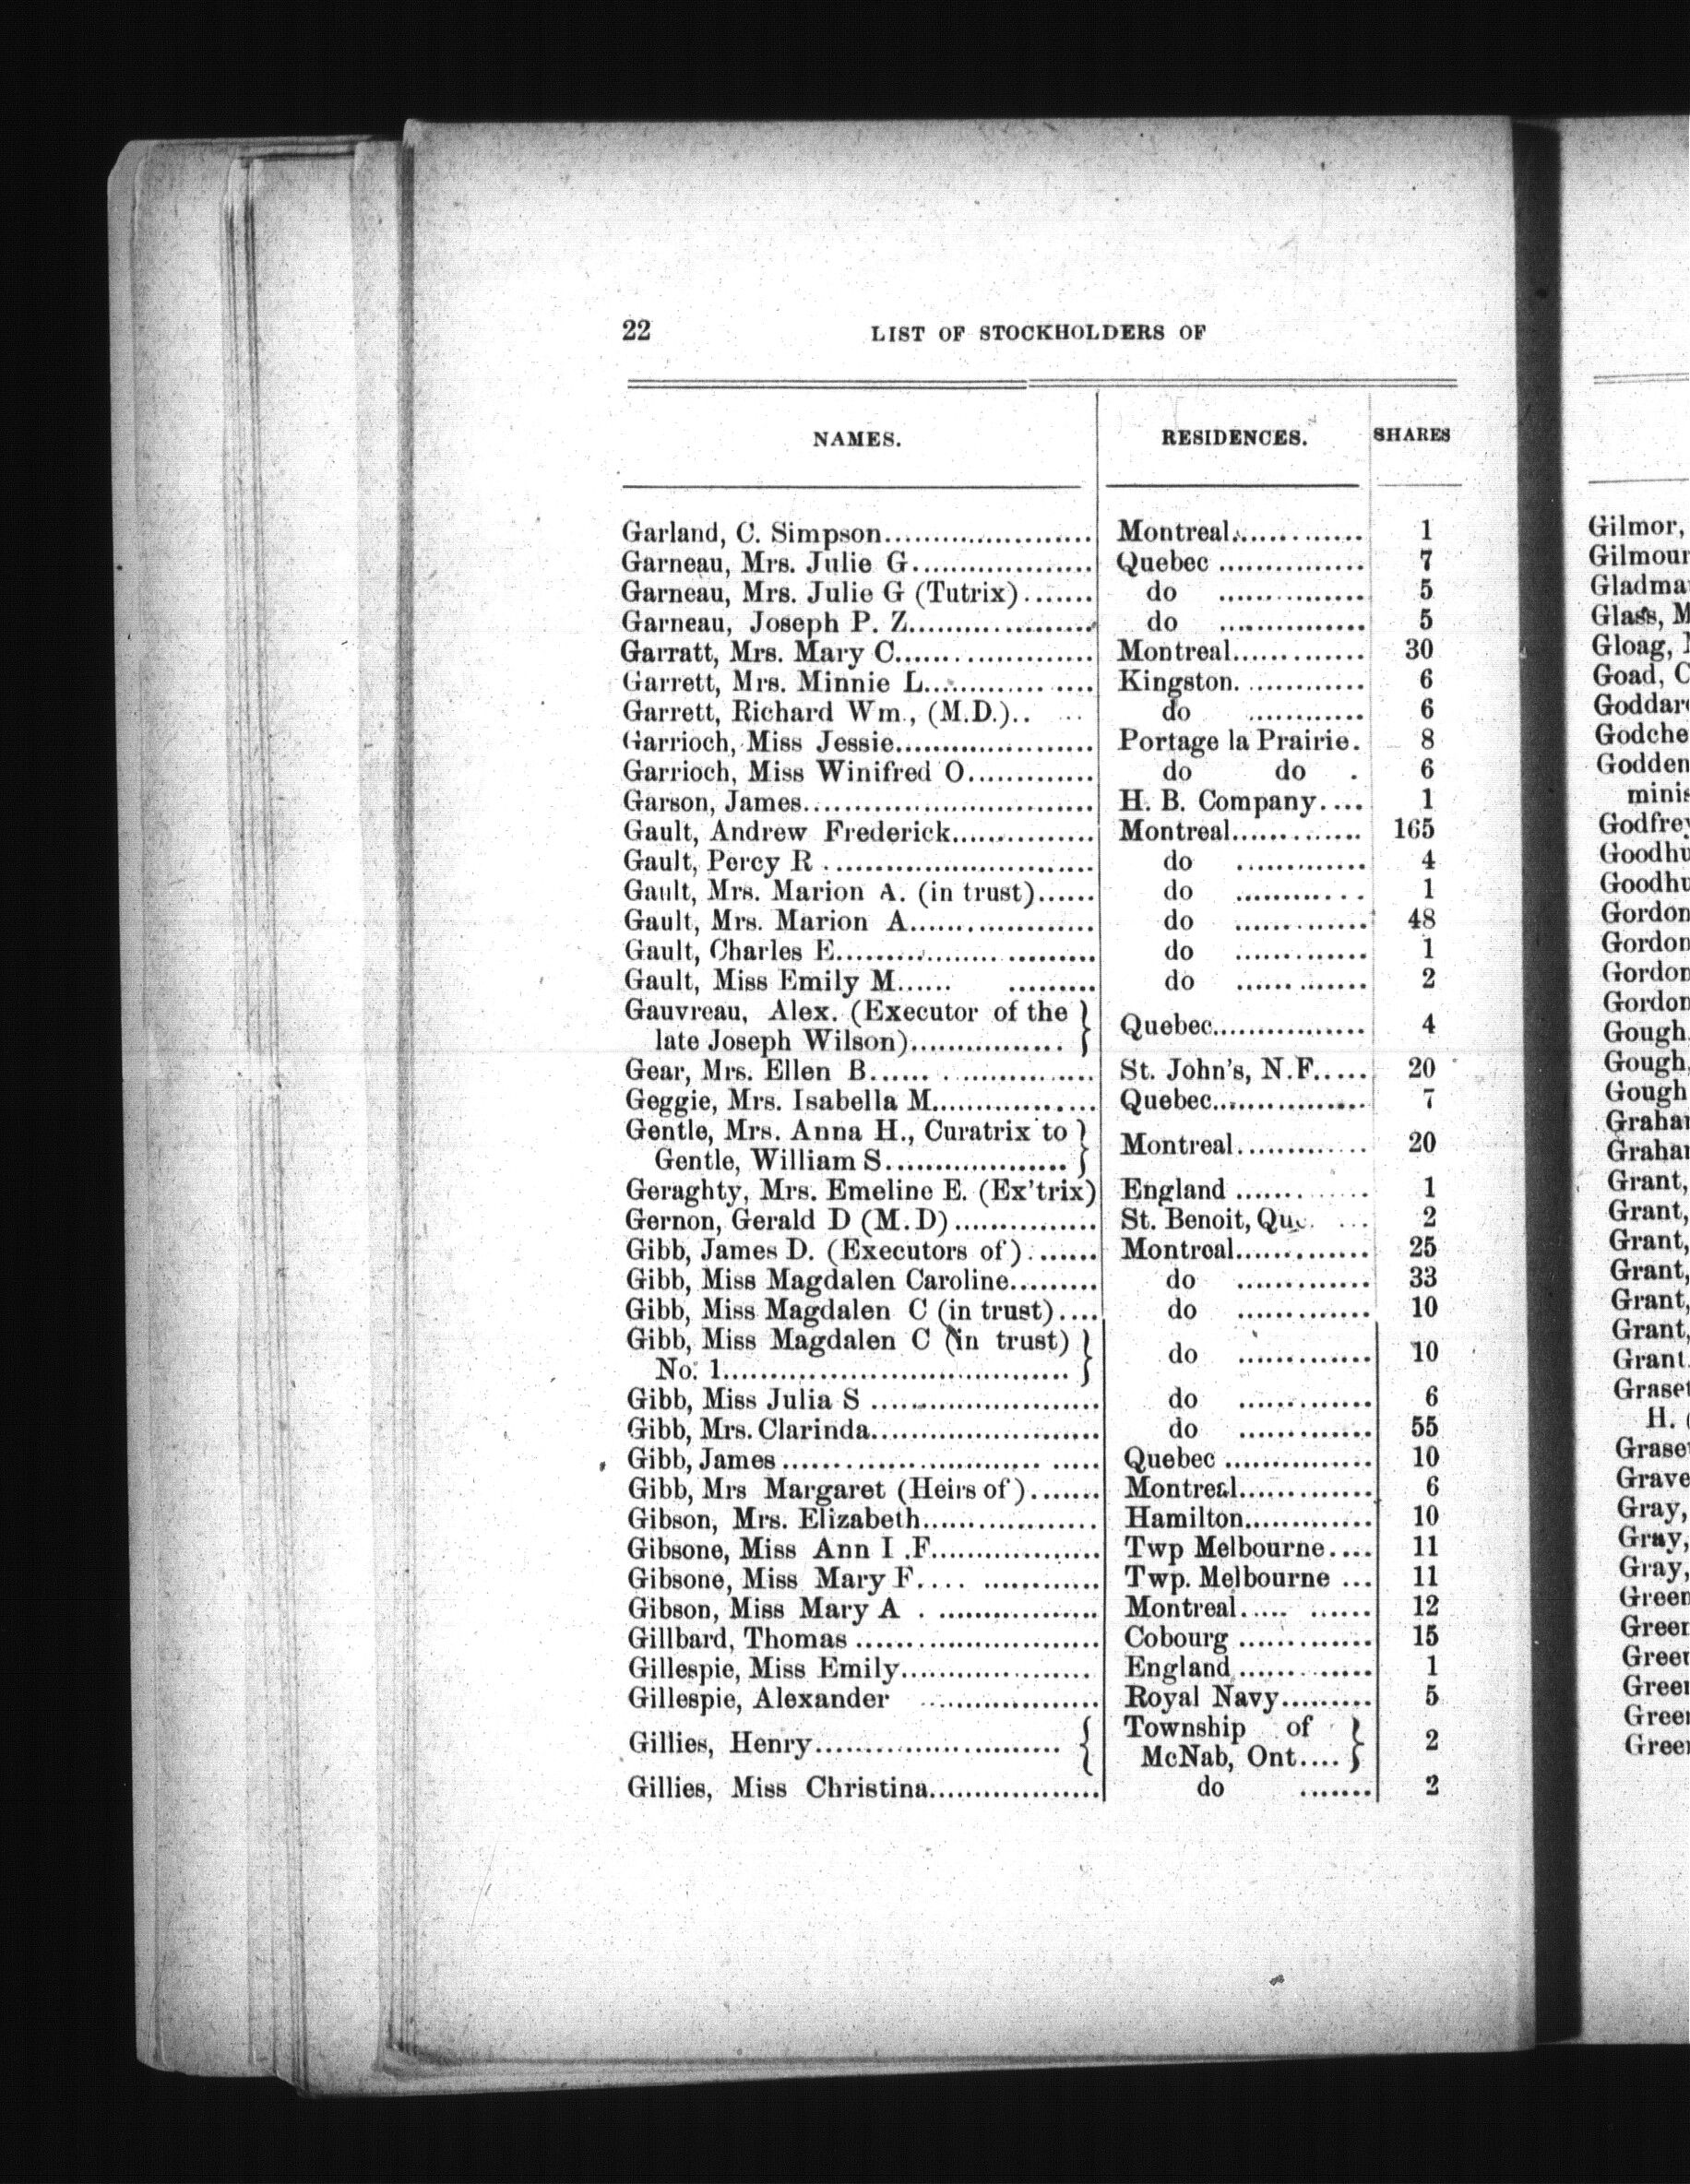 22 LIST OF STOCKHOLDERS OF
NAMES. RESIDENCES. SHARES
Garland, C. Simpson...................... Montreal............. 1
Garneau, Mrs. Julie G................... Quebec ............... 7
Garneau, Mrs. Julie G (Tutrix)....... do ............... 5
Garneau, Joseph P. Z.................... do ............... 5
Garratt, Mrs. Mary C..................... Montreal............. 30
Garrett, Mrs. Minnie L.................. Kingston. ............ 6
Garrett, Richard Wm., (M.D.).. ... do ............ 6
Garrioch, Miss Jessie..................... Portage la Prairie. 8
Garrioch, Miss Winifred O............. do do . 6
Garson, James.............................. H. B. Company.... 1
Gault, Andrew Frederick............... Montreal............. 165
Gault, Percy R ............................ do ............. 4
Gault, Mrs. Marion A. (in trust)...... do ............ 1
Gault, Mrs. Marion A.................... do ............. 48
Gault, Charles E........................... do ............. 1
Gault, Miss Emily M...... ......... do ............. 2
Gauvreau, Alex. (Executor of the
late Joseph Wilson)................ } Quebec................ 4
Gear, Mrs. Ellen B...... ................ St. John's, N.F..... 20
Geggie, Mrs. Isabella M................. Quebec................ 7
Gentle, Mrs. Anna H., Curatrix to
Gentle, William S................... } Montreal............. 20
Geraghty, Mrs. Emeline E. (Ex'trix) England ............. 1
Gernon, Gerald D (M.D)............... St. Benoit, Que. ... 2
Gibb, James D. (Executors of)....... Montreal............. 25
Gibb, Miss Magdalen Caroline......... do ............. 33
Gibb, Miss Magdalen C (in trust).... do ............. 10
Gibb, Miss Magdalen C (in trust)
No. 1................................... } do ............. 10
Gibb, Miss Julia S ........................ do ............. 6
Gibb, Mrs. Clarinda........................ do ............. 55
Gibb, James ........................... ..... Quebec ............... 10
Gibb, Mrs Margaret (Heirs of)....... Montreal............. 6
Gibson, Mrs. Elizabeth.................. Hamilton............. 10
Gibsone, Miss Ann I .F.................. Twp Melbourne.... 11
Gibsone, Miss Mary F.... ............ Twp. Melbourne ... 11
Gibson, Miss Mary A . ................. Montreal..... ...... 12
Gillbard, Thomas ......................... Cobourg ............. 15
Gillespie, Miss Emily.................... England ............. 1
Gillespie, Alexander ................... Royal Navy......... 5
Gillies, Henry.......................... { Township of
McNab, Ont.... } 2
Gillies, Miss Christina.................. do ....... 2
Gilmor,
Gilmour
Gladma
Glass, M
Gloag,
Goad, C
Goddar
Godche
Godden
minis
Godfrey
Goodhu
Goodhu
Gordon
Gordon
Gordon
Gordon
Gough
Gough,
Gough
Graha
Graha
Grant,
Grant,
Grant,
Grant,
Grant,
Grant,
Grant
Graset
H.
Graset
Grave
Gray,
Gray,
Gray,
Green
Green
Green
Green
Green
Green